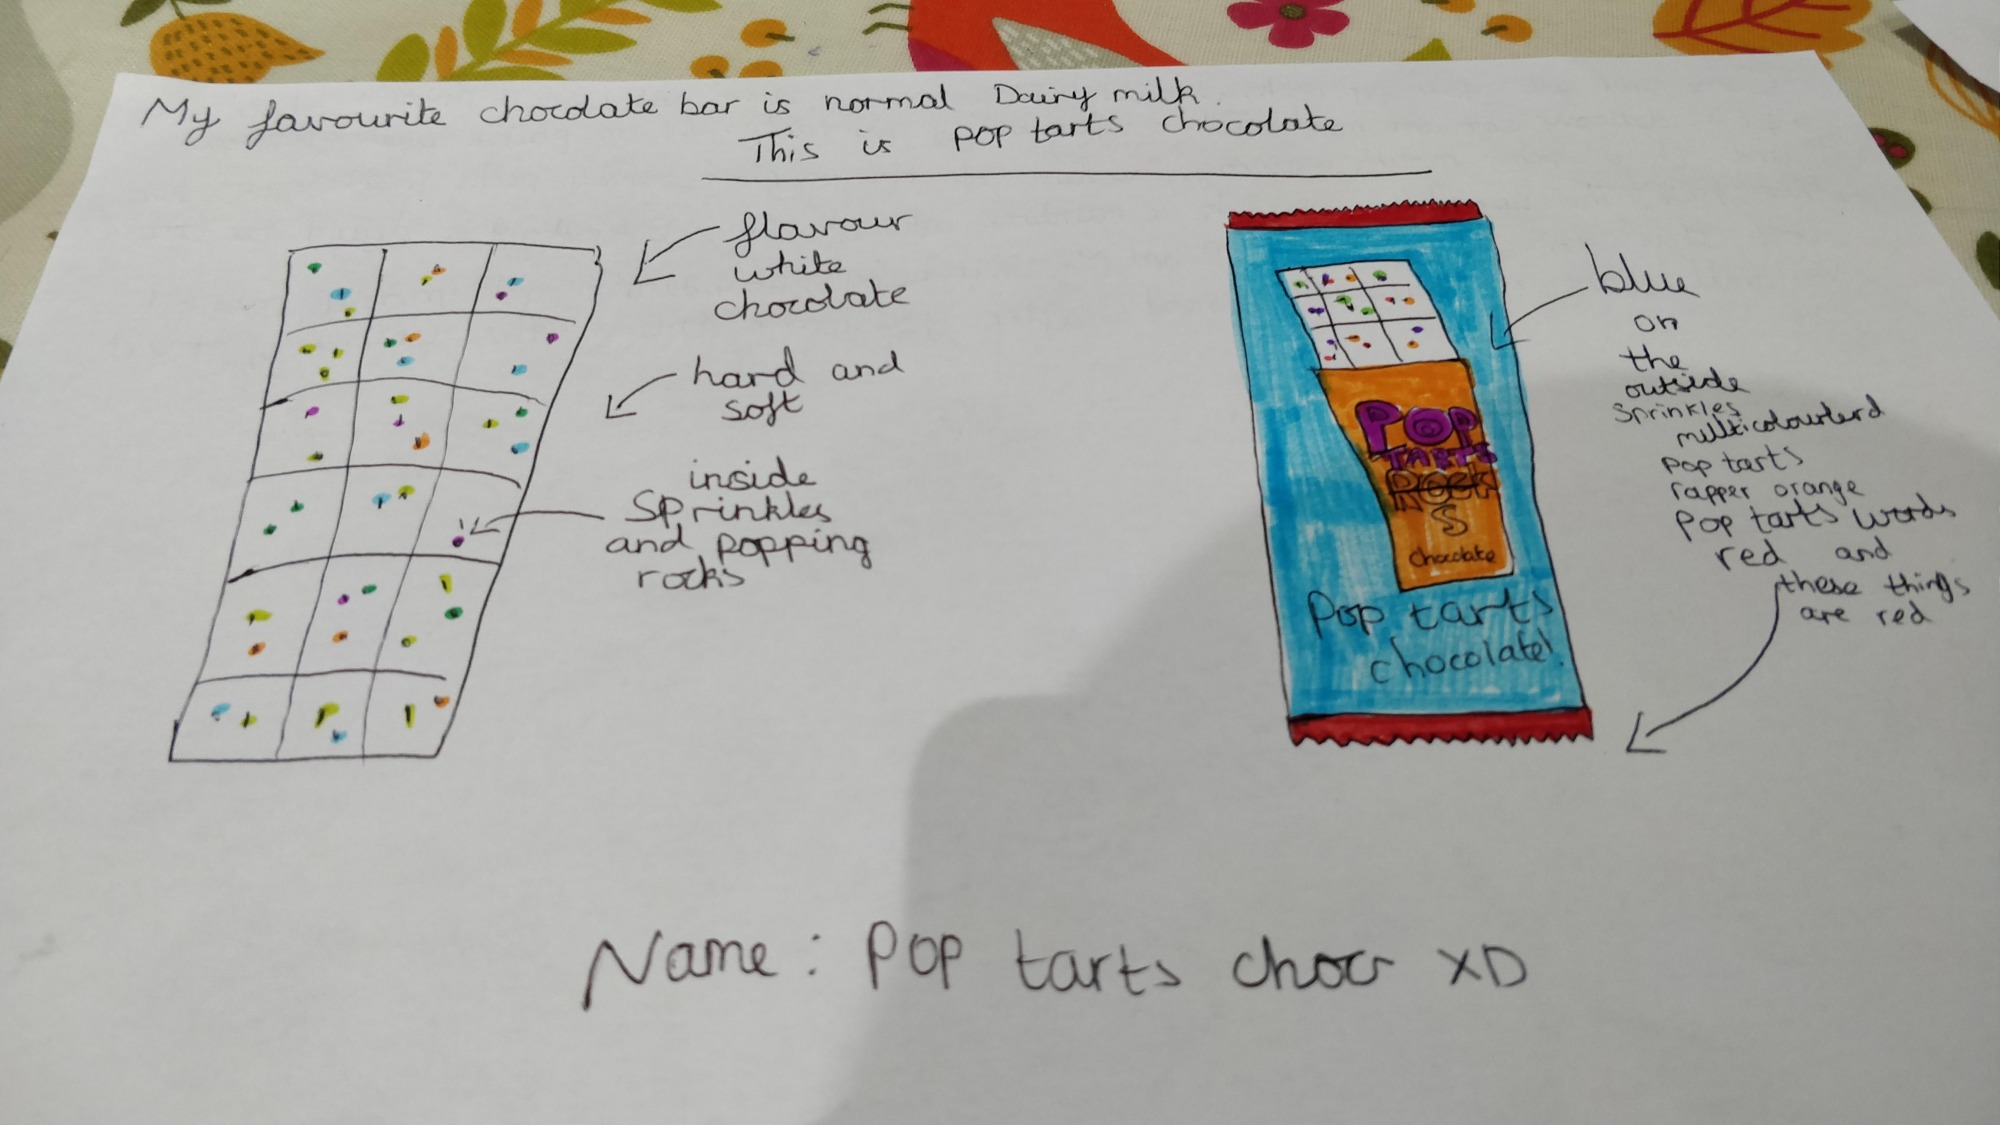 My favourite chocolate bar is normal Dairy milk.
This is pop tarts chocolate
flavour
white
chocolate
hard and
soft
inside
sprinkles
and popping
rocks
POP
TARTS
Rock
S
chocolate
Pop tarts
chocolate!
blue
on
the
outside
sprinkles
multicolourerd
pop tarts
rapper orange
pop tarts words
red and
these things
are red
Name: Pop tarts choc XD